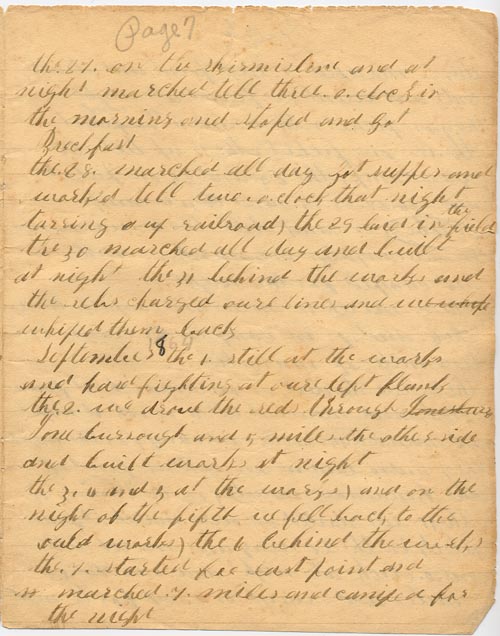 Page 7
the 27. on the skirmisline and at
night marched tell three. o.clock in
the morning and stoped and got
Breckfast
the 28. marched all day got supper and
worked tell two. o.clock that night
tarring up railroad, the 29 laid in the field
the 30 marched all day and built
at night the 31 behind the works and
the rebs charged oure lines and we
whiped them back
September 1864 the 1. still at the works
and hard fighting at oure left flank
the 2. we drove the rebs through
Jone burrough and 5 miles the other side
and built works at night
the 3, 4 and 5 at the works, and on the
night of the fifth we fell back to the
ould works, the 6 behind the works
the 7. started for east point and
marched 7. miles and camped for
the night